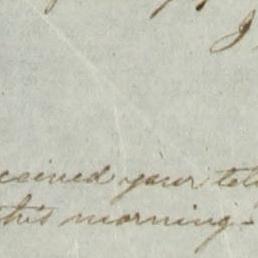 J
ceived your tele
this morning-